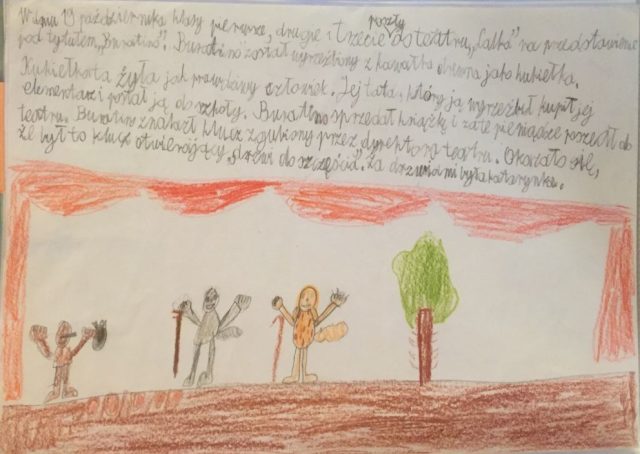 W dniu 19 października klasy pierwsze, drugie i trzecie poszły do teatru „Lalka” na przedstawienie
pod tytułem „Buratino”. Buratino został wyrzeźbiony z kawałka drewna jako kukiełka.
Kukiełka ta żyła jak prawdziwy człowiek. Jej tata, który ją wyrzeźbił kupił jej
elementarz i posłał ją do szkoły. Buratino sprzedał książkę i za te pieniądze poszedł do
teatru. Buratino znalazł klucz zgubiony przez dyrektora teatru. Okazało się,
że był to klucz otwierający „drzwi do szczęścia”. Za drzwiami była katarynka.